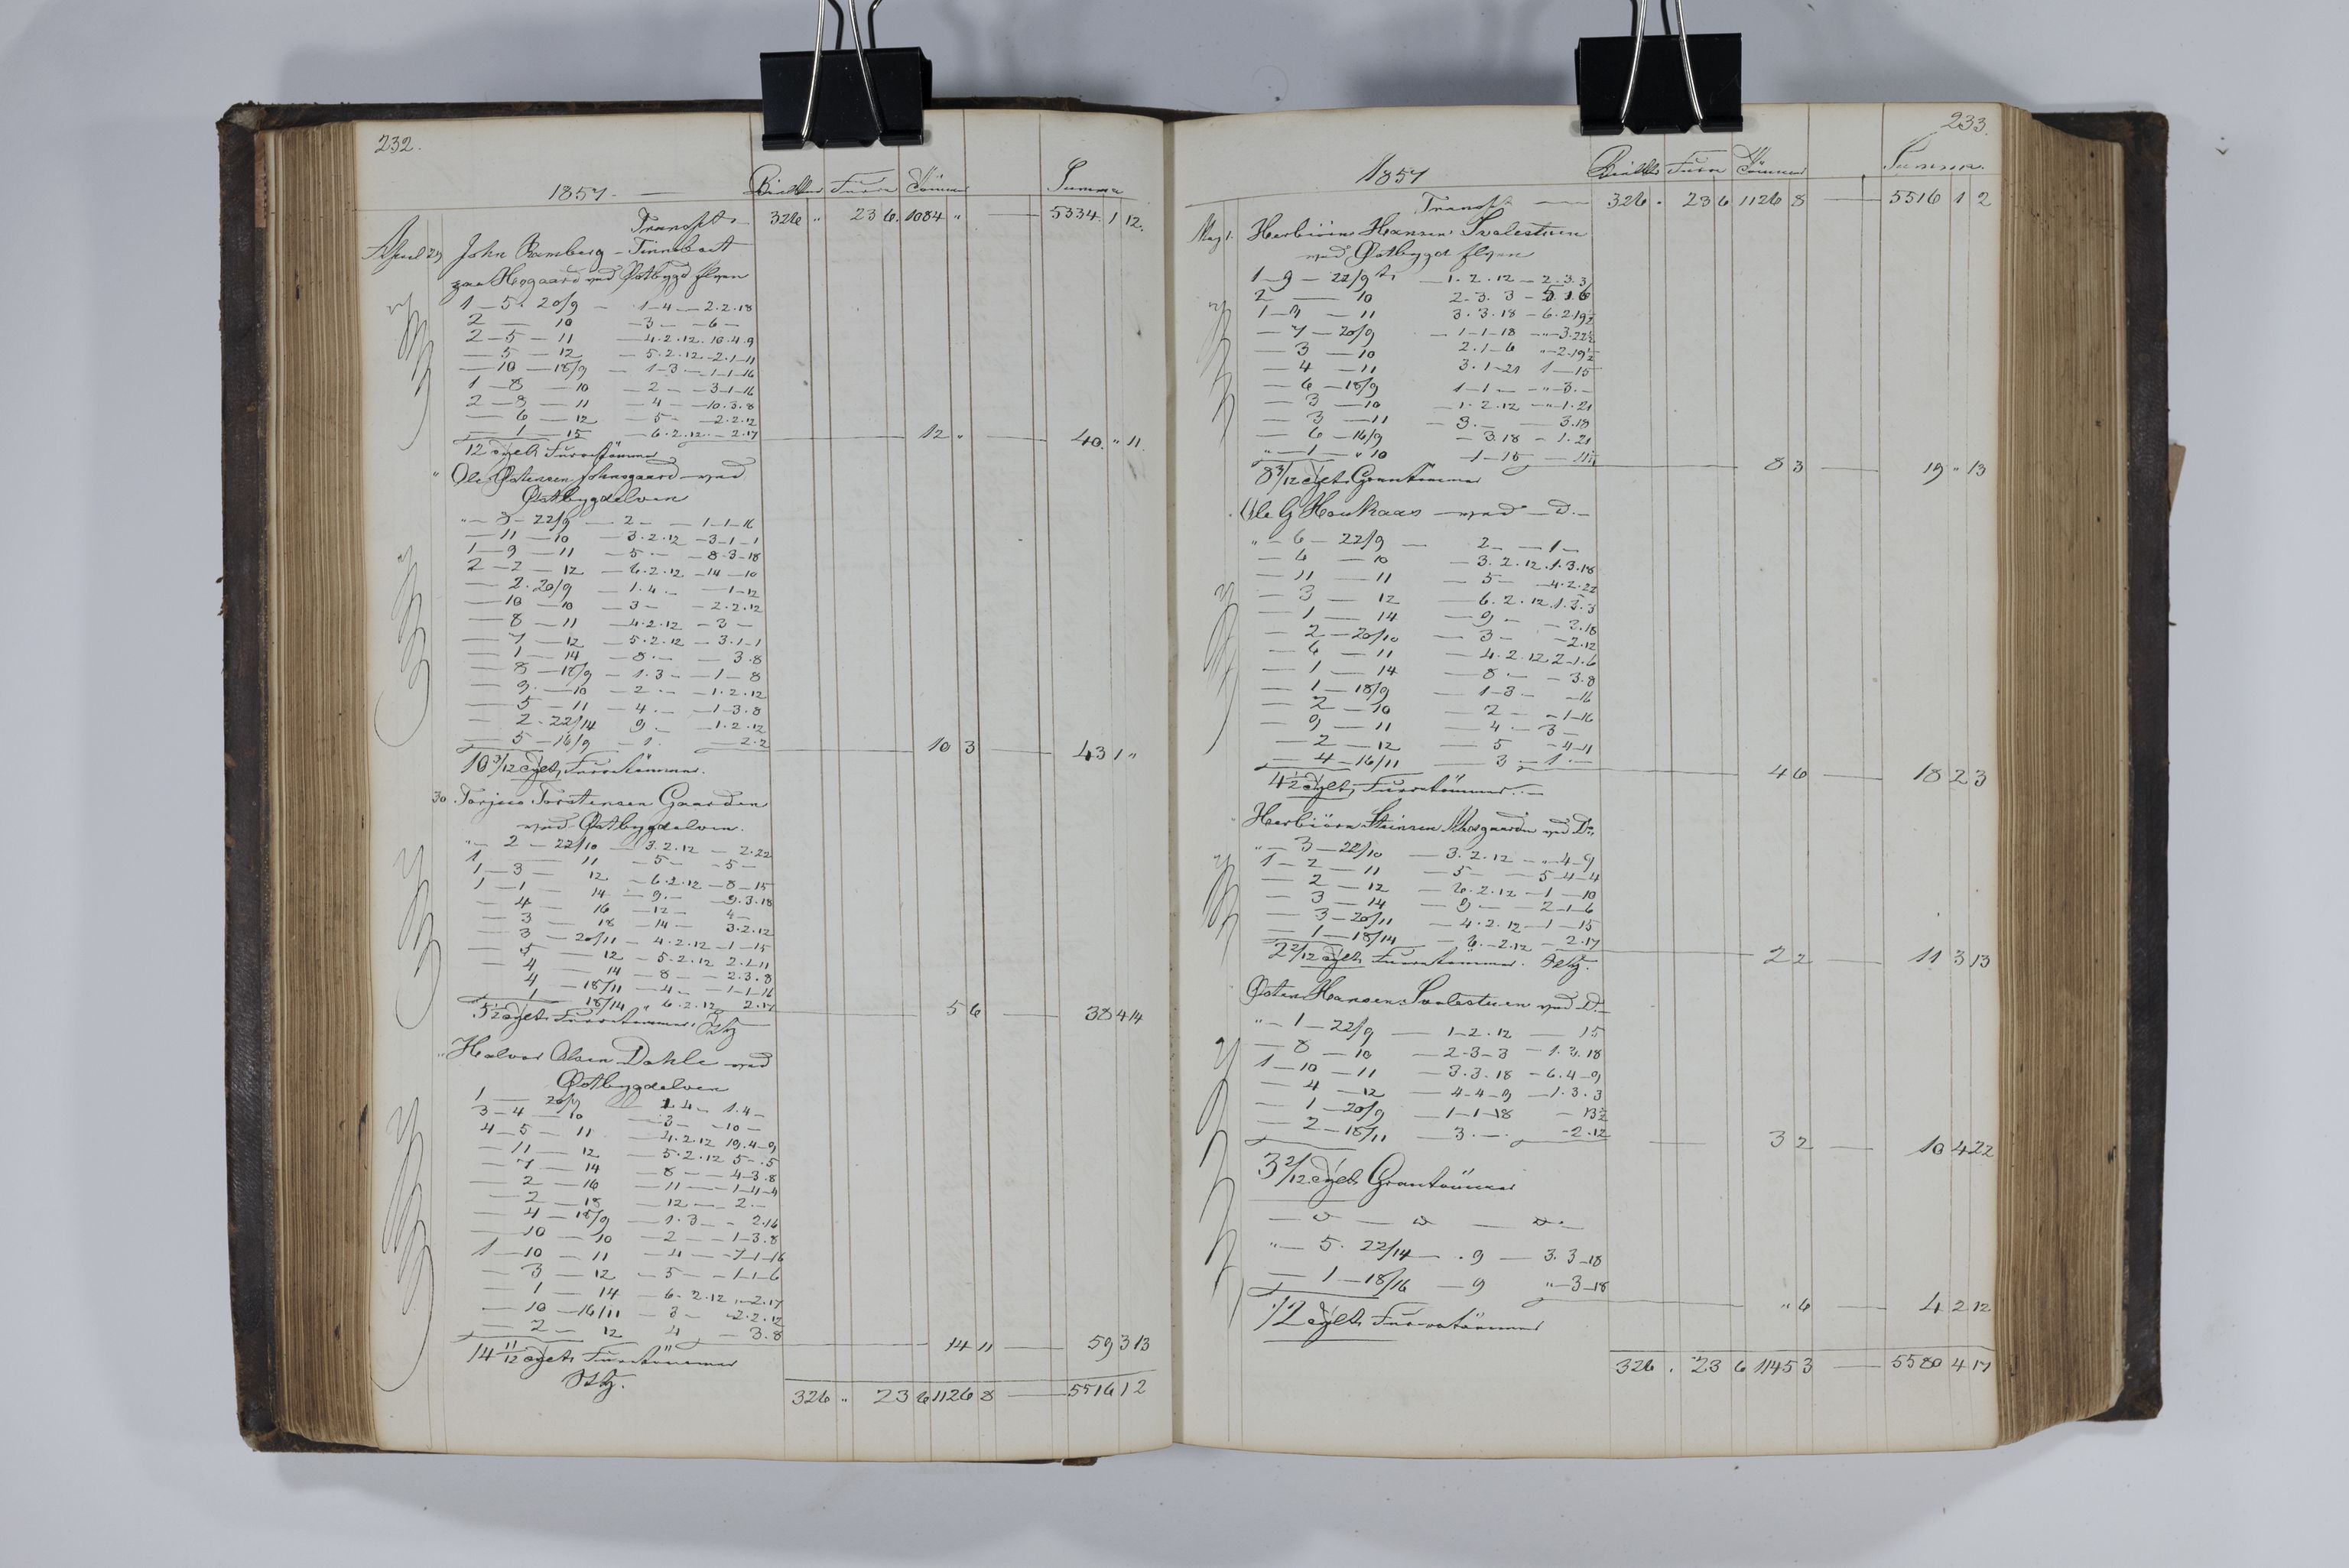 232.
1857 — Furu Tömmer Summa
Transpt 326 " 23 6. 1084 " — 5334. 1 12.
April 29 John Ramberg - Tinnebact
paa Hoegaard ved Østbygd Elven
1 — 5 . 20/9 — 1—4 — 2.2.18
2 — 10 — 3 — — 6 —
2 — 5 — 11 — 4.2.12. 10.4.9
— 5 — 12 — 5.2.12 — 2.1—11
— 10 — 18/9 — 1—3 — 1—1—16
1 — 8 — 10 — 2 — — 3—1—16
2 — 8 — 11 — 4 — — 10.3.8
— 6 — 12 — 5 — 2.2.12
— 1 — 15 — 6.2.12. — 2.17
12 " — 40. " 11.
12 Tylt Furutömmer
" Ole Østensen Johnsgaard ved
Østbygdelven
" — 3 — 22/9 — 2 — — 1—1—16
— 11 — 10 — 3.2.12 — 3—1—1
1 — 9 — 11 — 5 — — 8.3—18
2 — 2 — 12 — 6.2.12 — 14 — 10
— 2. 20/9 — 1.4. — — 1—12
— 10 — 10 — 3 — — 2.2.12
— 8 — 11 — 4.2.12 — 3 —
— 7 — 12 — 5.2.12 — 3.1—1
— 1 — 14 — 8. — — 3.8
— 8 — 18/9 — 1.3 — — 1 — 8
— 9. — 10 — 2 — — 1.2.12
— 5 — 11 — 4. — — 1—3.8
— 2 - 22/14 9 — — 1.2.12
— 5 — 16/9 — 1. — 2.2
10 3 — 43 1 "
10 3/12 Tylt Furutömmer.
30. Torjus Torstensen Gaarden
ved Østbygdelven.
" — 2 — 22/10 — 3.2.12 — 2.22
1 — 11 — 5 — — 5 —
1 — 3 — 12 — 6.2.12 — 8—15
1 — 1 — 14 — 9. — 9.3.18
— 4 — 16 — 12 — 4 —
— 3 — 18 — 14 — 3.2.12
— 3 — 20/11 — 4.2.12 — 1—15
— 5 — 12 — 5.2.12 2.2.11
— 4 — 14 — 8 — — 2.3.8
— 4 — 18/11 — 4 — — 1—1—16
— 1 18/14 " 6.2.12 2.17
5 6 — 38 4 14
5 1/2 Tylt Furutömmer.
" Halvor Olsen Dahle ved
Østbygdelven
1 — 20/9 — 1.4 — 1.4 —
3 — 4 — 10 — 3 — — 10 —
4 — 5 — 11 — 4.2.12 19.4—9
— 11 — 12 — 5.2.12 5 — .5
— 7 — 14 — 8 — — 4—3.8
— 2 — 16 — 11 — — 1—4—4
— 2 — 18 — 12 — — 2. —
— 4 — 18/9 — 1.3 — — 2.16
— 10 — 10 — 2 — — 1—3.8
1 — 10 — 11 — 4 — — 7—1—16
— 3 — 12 — 5 — — 1—1—6
— 1 — 14 — 6.2.12 " — 2.17
— 10 — 16/11 — 3 — — 2.2.12
— 2 — 12 4 — 3.8
14 11 — 59 3 13
14 11/12 Tylt Furutömmer
326 " 23 6 1126 8 — 5516 1 2
233.
1857 Furu Tömmer Summa.
Transpt — 326 . 23 6 1126 8 — 5516 1 2
May 1. Herbiörn Hansen Svalestuen
ved Østbygd Elven
1 — 9 — 22/9 — 1.2.12 — 2.3.3
2 — 10 2.3.3 — 5.1.6
1 — 9 — 11 3.3.18 — 6.2.19 1/2
— 7 — 20/9 — 1—1—18 — " — 3.22 1/2
— 3 — 10 2.1—6 " — 2.19 1/2
— 4 — 11 3.1—21 1—15
— 6 — 18/9 1—1 — — " — 3. —
— 3 — 10 — 1.2.12 — " — 1.21
— 3 — 11 — 3. — — 3.18
— 6 — 16/9 — 3.18 — 1.21
" — 1 — " 10 —1—15 —
8 3 — 19 " 13
8 3/12 Tylt Grantömmer
" Ole G Haukaas — ved — D. —
" — 6 — 22/9 — 2 — — 1 —
— 6 — 10 — 3.2.12. 1.3.18
— 11 — 11 — 5 — — 4.2.22
— 3 — 12 — 6.2.12. 1.3.3
— 1 — 14 — 9 — — 3.18
— 2 — 20/10 — 3 — — 2.12
— 6 — 11 — 4.2.12 2—1.6
— 1 — 14 — 8 — — 3.8
— 1 — 18/9 — 1—3 — —16
— 2 — 10 — 2 — — 1—16
— 9 — 11 — 4 — 3 —
— 2 — 12 — 5 — 4—11
— 4 — 16/11 — 3 — 1. —
4 6 — 18 2 3
4 1/2 Tylt Furutömmer. —
" Herbiörn Steinsen Mosgaarden ved Do.
" — 3 — 22/10 — 3.2.12 — " — 4—9
1 — 2 — 11 — 5 — 5—4—4
— 2 — 12 — 6.2.12 — 1—10
— 3 — 14 — 9 — — 2—1—6
— 3 — 20/11 — 4.2.12 — 1—15
— 1 — 18/14 — 6.—2.12 — 2.17
2 2 — 11 3 13
2 2/12 Tylt Furutömmer.
Østen Hansen Svalestuen ved D. —
" — 1 — 22/9 — 1—2.12 — 15
— 8 — 10 — 2—3—3 — 1.3.18
1 — 10 — 11 — 3.3.18 — 6.4—9
— 4 — 12 — 4—4—9 — 1.3.3
— 1 — 20/9 — 1—1—18 — 13 1/2
— 2 — 18/11 — 3. — — 2.12
3 2 — 10 4 22
3 2/12 Tylt Grantömmer
— D — D — D. —
" — 5. 22/14 — . 9 — 3. 3—18
— 1 — 18/16 — 9 " — 3—18
" 6 — 4 2 12
1/2 Tylt Furutömmer
326 . 23 6 1145 3 — 5580 4 17